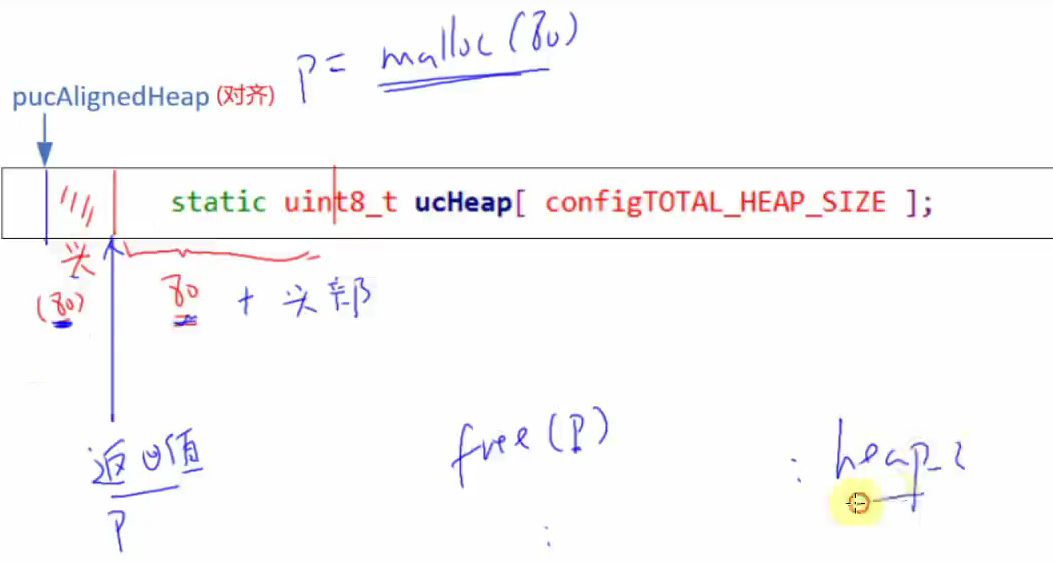 P = malloc(80)
pucAlignedHeap (对齐)
static uint8_t ucHeap[ configTOTAL_HEAP_SIZE ];
头
(80) 80 + 头部
返回值
P
free(P)
: heap_2